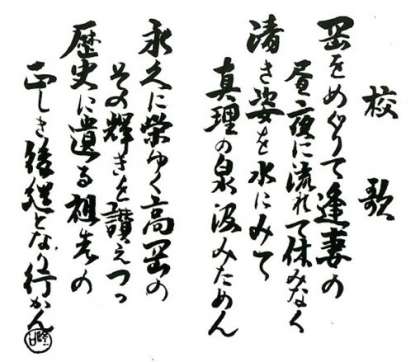 校歌
岡をめぐりて逢妻の
昼夜に流れて休みなく
清き姿を水にみて
真理の泉汲みためん
永久に栄ゆく高岡の
その輝きを讃えつつ
歴史に遺る祖先の
正しき後継となり行かん